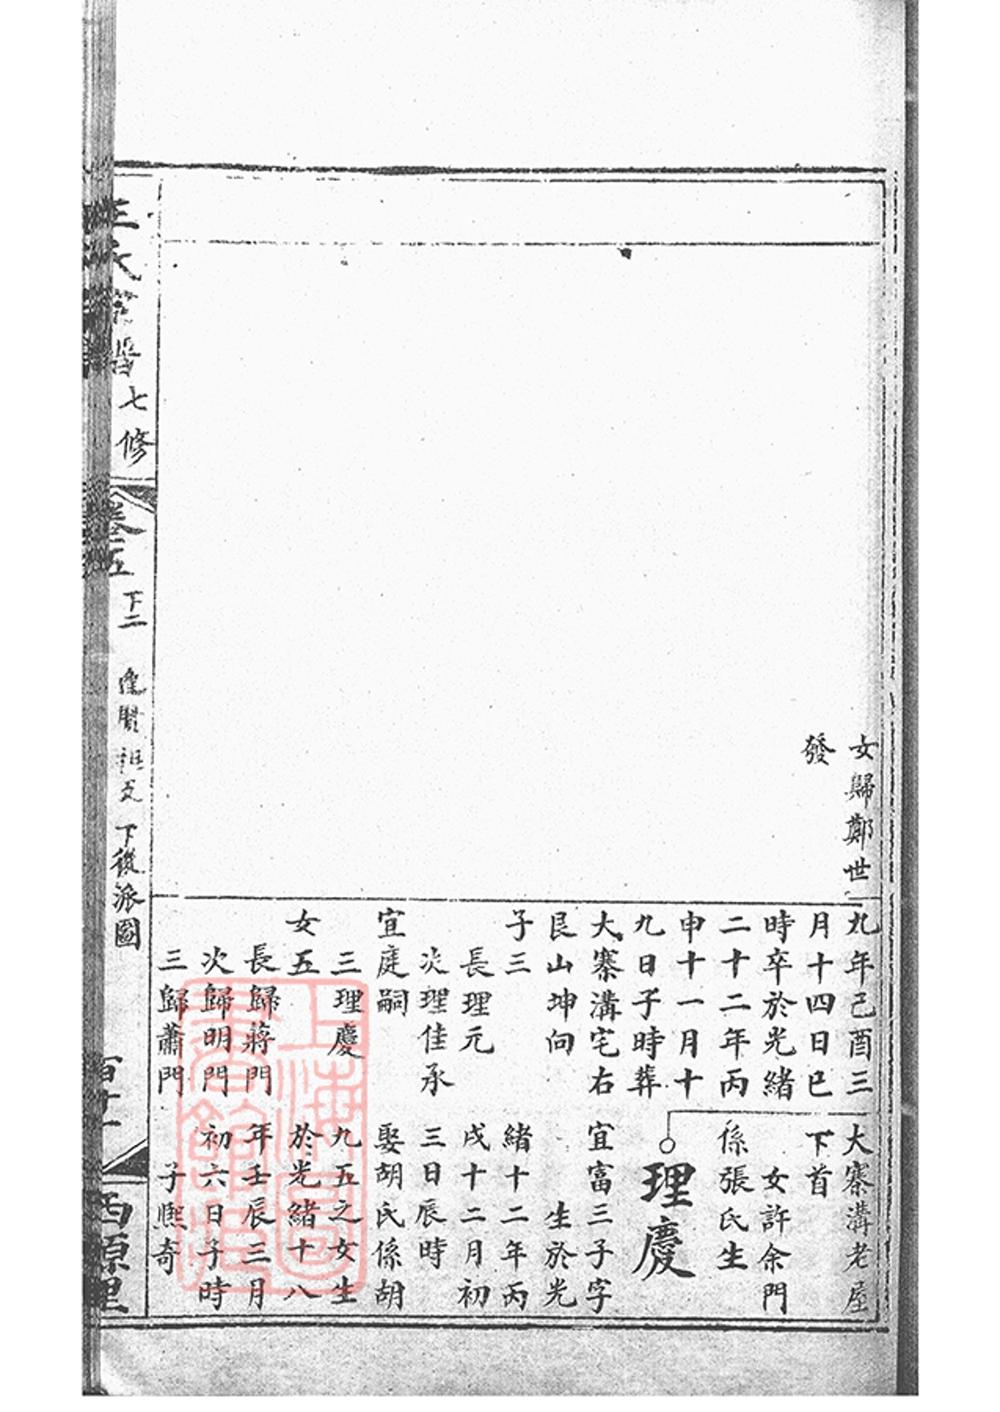 女歸鄭世
發
九年己酉三
月十四日巳
時卒於光緒
二十二年丙
申十一月十
九日子時葬
大寨溝宅右
艮山坤向
子三
長理元
次理佳承
宜庭嗣
三理慶
女五
長歸蔣門
次歸明門
三歸蕭門
大寨溝老屋
下首
女許余門
係張氏生
理慶
宜富三子字
生於光
緒十二年丙
戌十二月初
三日辰時
娶胡氏係胡
九五之女生
於光緒十八
年壬辰三月
初六日子時
子熙奇
王氏宗譜
七修
卷五
下二
祖支
下後派圖
西原里
上海圖書館藏